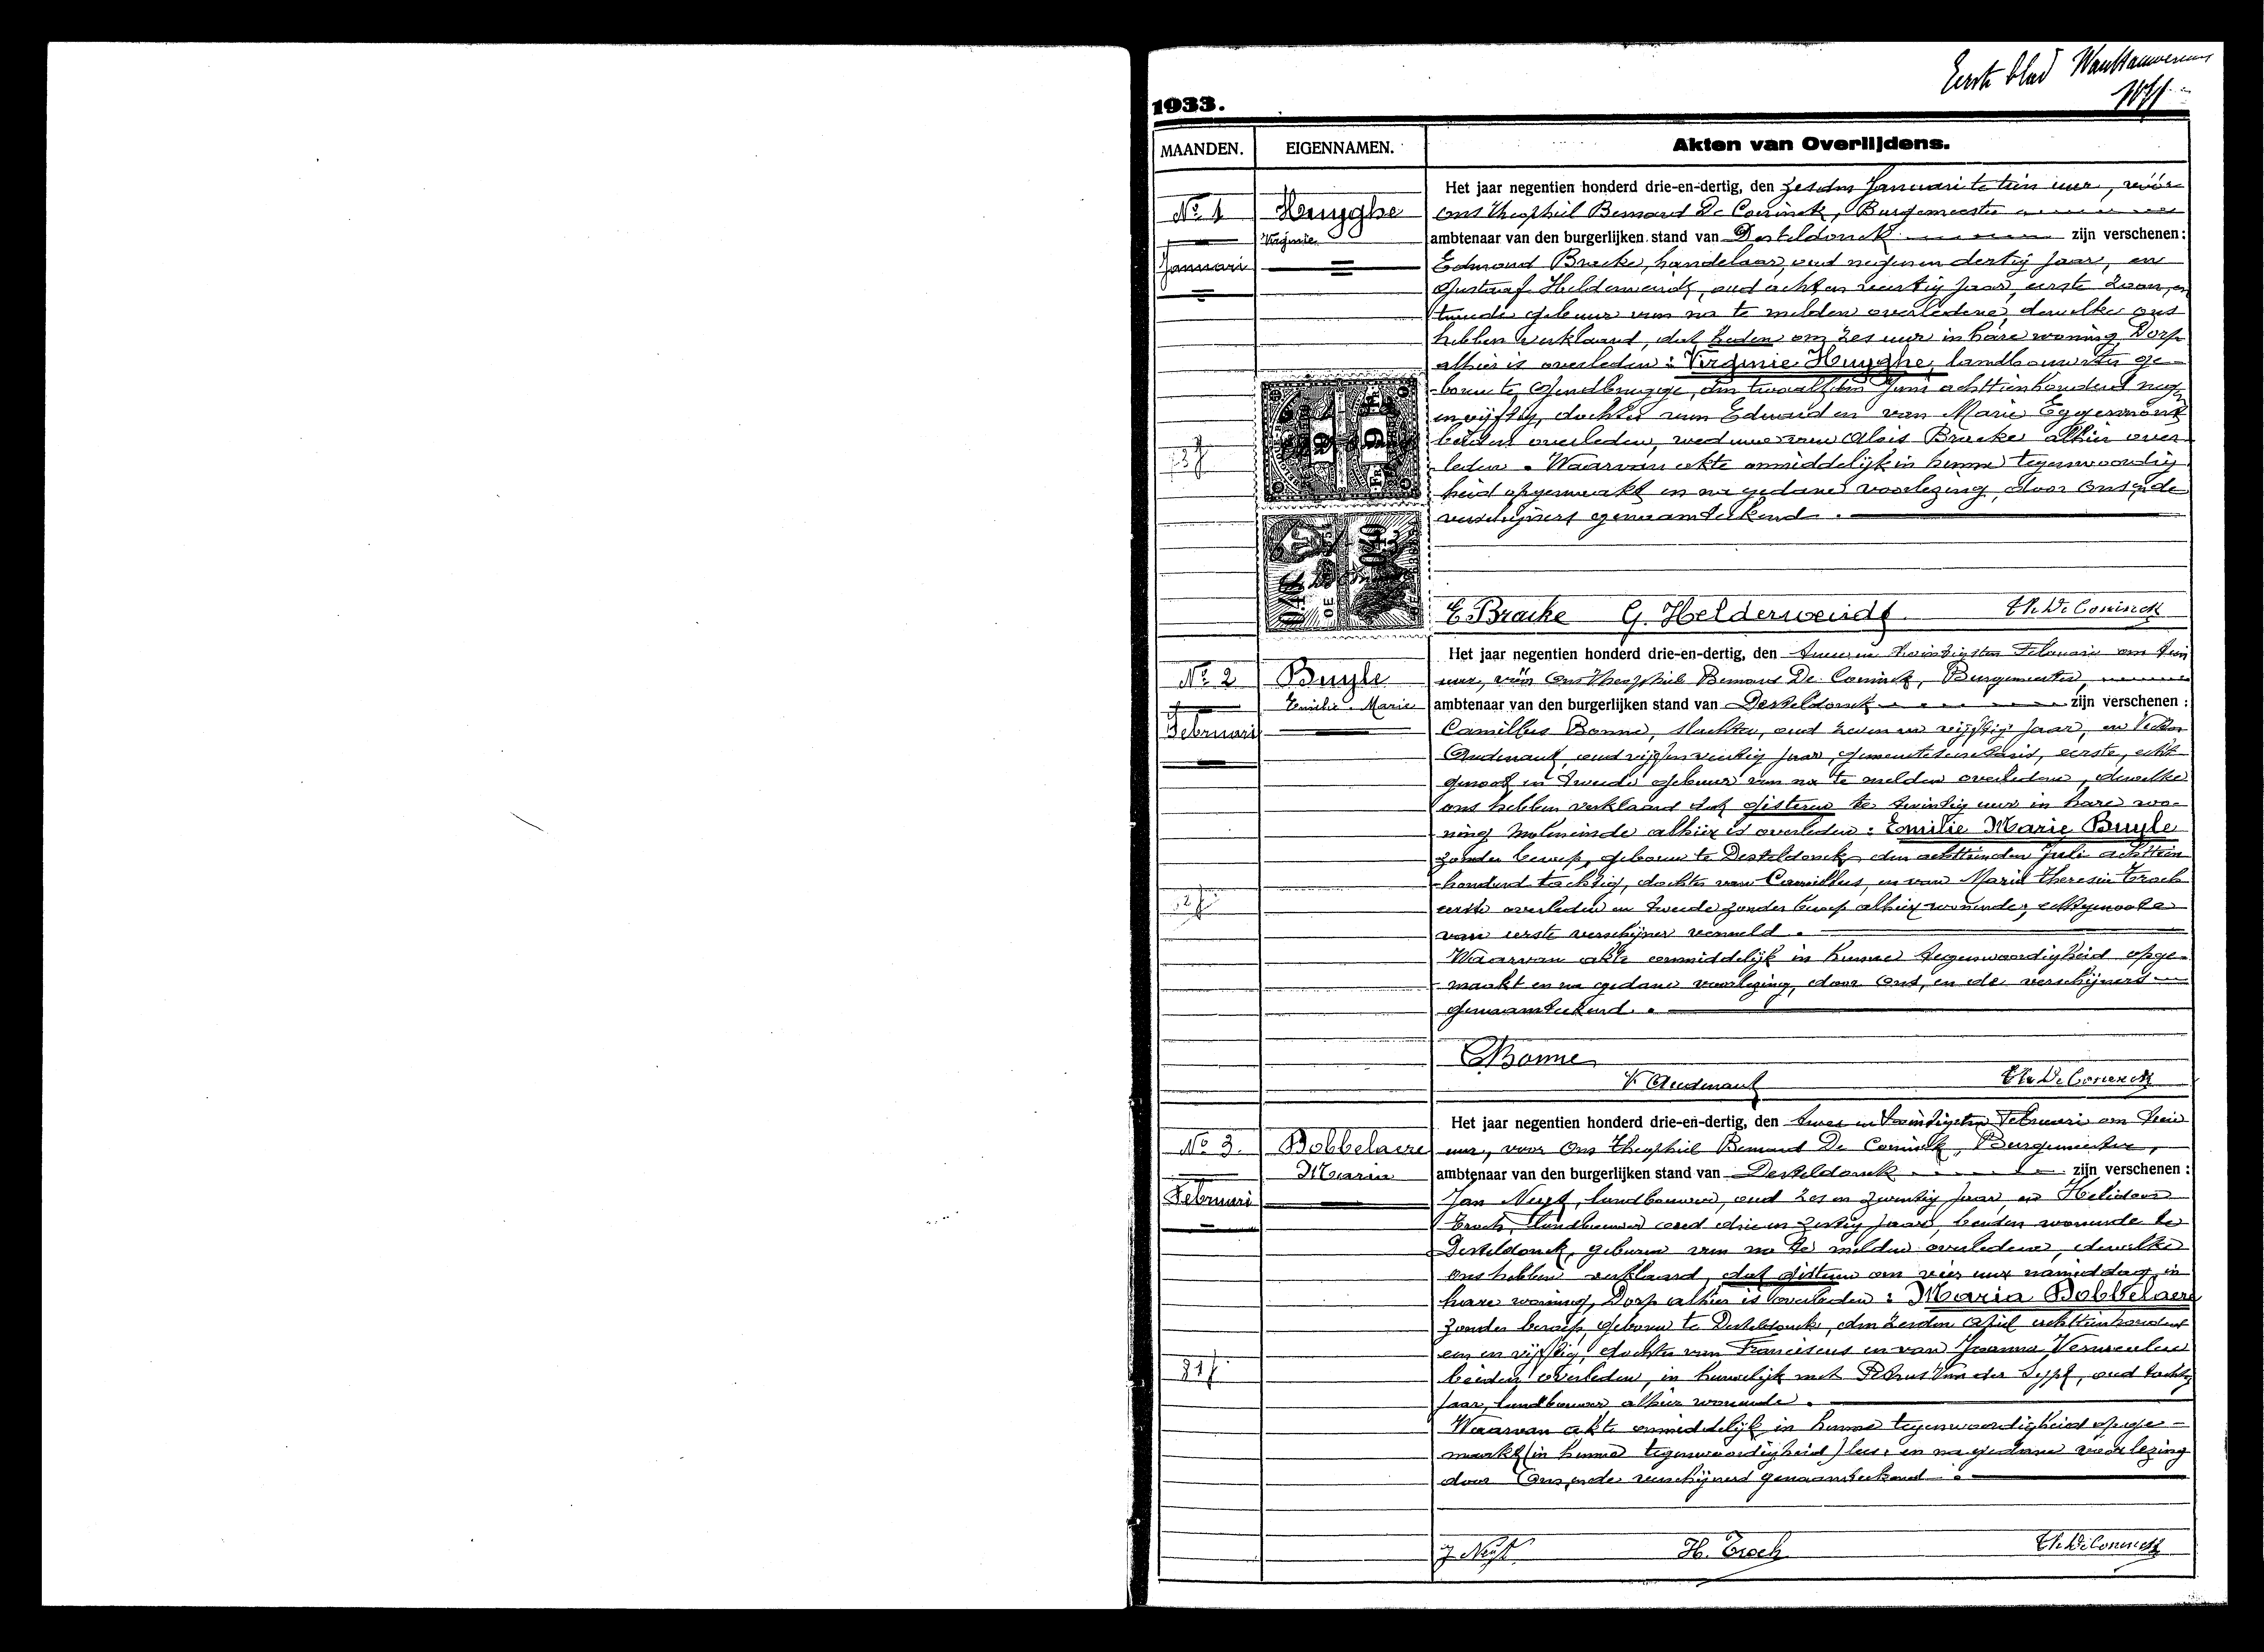 Eerste blad
1933.
MAANDEN. EIGENNAMEN. Akten van Overlijdens.
No 1
Januari
Huyghe
Virginie
Het jaar negentien honderd drie-en-dertig, den zesden Januari te tien uur, vóór
Ons Theophiel Bernard De Coninck, Burgemeester
ambtenaar van den burgerlijken stand van Desteldonck zijn verschenen:
Edmond Bracke, handelaar, oud negenendertig jaar, en
Gustaaf Helderweirdt, oud achten veertig jaar, eerste zoon, en
tweede gebuur van na te melden overledene, dewelke ons
hebben verklaard, dat heden om zes uur in hare woning, Dorp
alhier is overleden: Virginie Huyghe, landbouwster ge-
boren te Gendbrugge, den twaalfden Juni achttienhonderd neg
en vijftig, dochter van Eduard en van Marie Eggermont
beiden overleden, weduwe van Alois Bracke alhier over-
leden. Waarvan akte onmiddelijk in hunne tegenwoordig
heid opgemaakt en na gedane voorlezing, door Ons en de
verschijners genaamteekend.
9 FR 9 FR
0.40 0.40
E Bracke G. Helderweirdt Th. De Coninck
No 2
Februari
Buyle
Emilie Marie
Het jaar negentien honderd drie-en-dertig, den twee en twintigsten Februari om tien
uur, vóór Ons Theophiel Bernard De Coninck, Burgemeester,
ambtenaar van den burgerlijken stand van Desteldonck zijn verschenen:
Camillus Bonne, slachter, oud zeven en vijftig jaar, en Victor
Audenaert, oud vijfentwintig jaar, gemeentesecretaris, eerste, echt-
genoot en tweede gebuur van na te melden overledene, dewelke
ons hebben verklaard dat gisteren te twintig uur in hare wo-
ning Moleneinde alhier is overleden: Emilie Marie Buyle
zonder beroep, geboren te Desteldonck den achttienden Juli achttien
honderd tachtig, dochter van Camillus, en van Marie Theresia Troch
eerste overleden en tweede zonder beroep alhier woonende, echtgenoote
van eerste verschijner vermeld.
Waarvan akte onmiddelijk in hunne tegenwoordigheid opge-
maakt en na gedane voorlezing, door Ons, en de verschijners
genaamteekend.
C Bonne
V. Audenaert Th. De Coninck
No 3.
Februari
Dobbelaere
Maria
Het jaar negentien honderd drie-en-dertig, den twee en twintigsten Februari om tien
uur, voor Ons Theophiel Bernard De Coninck, Burgemeester,
ambtenaar van den burgerlijken stand van Desteldonck zijn verschenen:
Jan Nuyt, landbouwer, oud zes en twintig jaar en Heliodoor
Troch, landbouwer oud drie en zestig jaar, beiden woonende te
Desteldonck, geburen van na te melden overledene, dewelke
ons hebben verklaard, dat gisteren om vier uur namiddag in
hare woning, Dorp alhier is overleden: Maria Dobbelaere
zonder beroep, geboren te Desteldonck, den zesden April achttienhonderd
een en vijftig, dochter van Franciscus en van Joanna Vermeulen
beiden overleden, in huwelijk met Petrus Van der Sypt, oud tachtig
jaar, landbouwer alhier woonende.
81 j
Waarvan akte onmiddelijk in hunne tegenwoordigheid opge-
maakt (in hunne tegenwoordigheid) lees. en na gedane voorlezing
door Ons, en de verschijners genaamteekend.
J Nuyt H. Troch Th. De Coninck